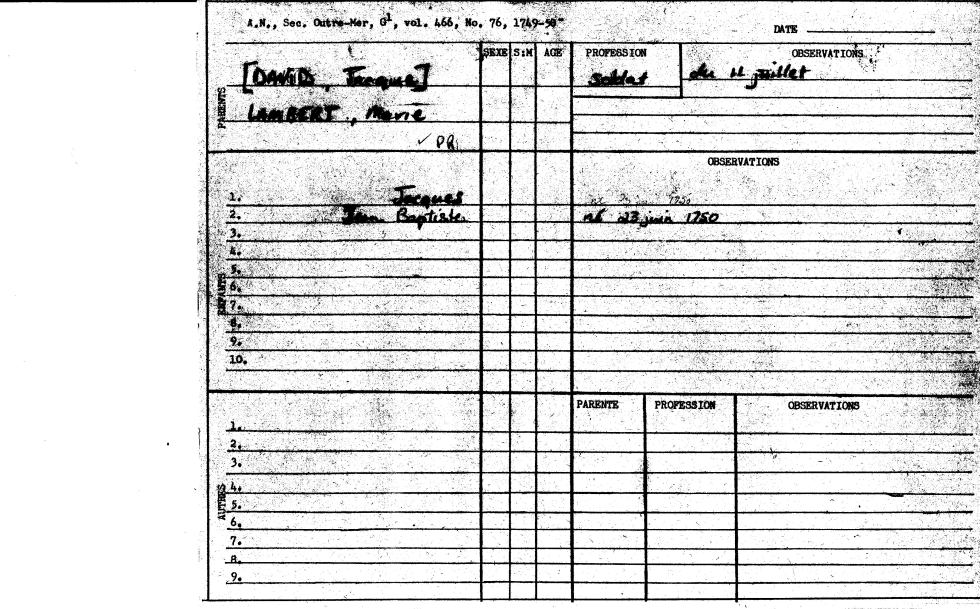 A.N., Sec. Outre-Mer, G¹, vol. 466, No. 76, 1749-50
DATE
SEXE S:M AGE PROFESSION OBSERVATIONS
[DAVID, Jacques] Soldat du 11 juillet
PARENTS
LAMBERT, Marie
✓ PR
OBSERVATIONS
1. Jacques 1750
2. Jean Baptiste né 23 juin 1750
3.
4.
5.
ENFANTS
6.
7.
8.
9.
10.
PARENTE PROFESSION OBSERVATIONS
1.
2.
3.
AUTRES
4.
5.
6.
7.
8.
9.